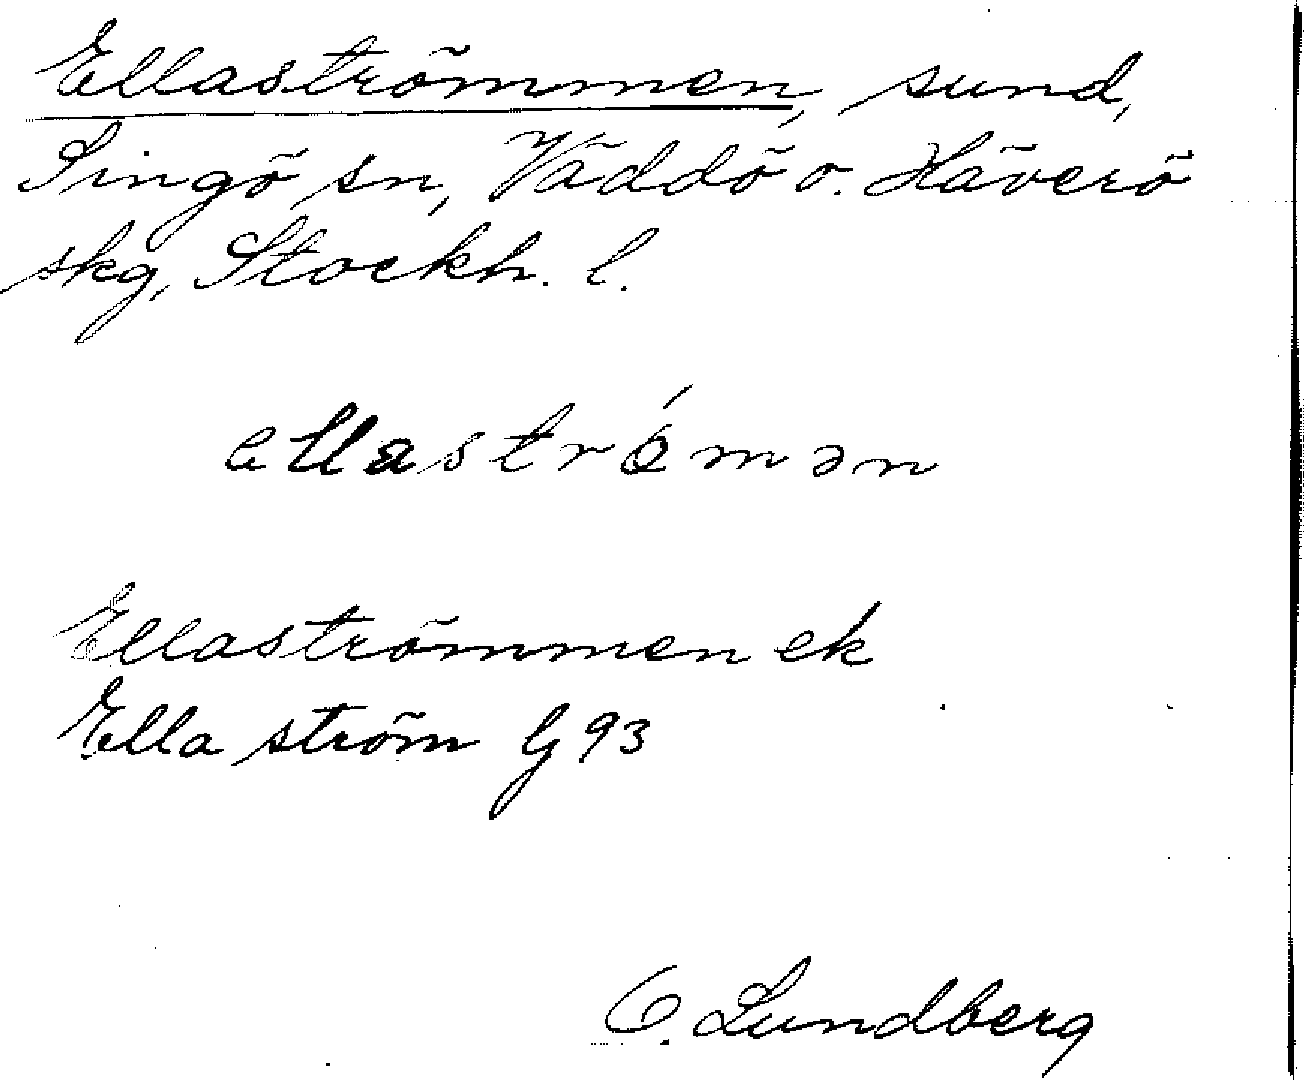 Ellaströmmen, sund,
Singö sn, Väddö o. Häverö
skg, Stockh. l.
ellastrǿmən
Ellaströmmen ek
Ella ström G 93
O. Lundberg